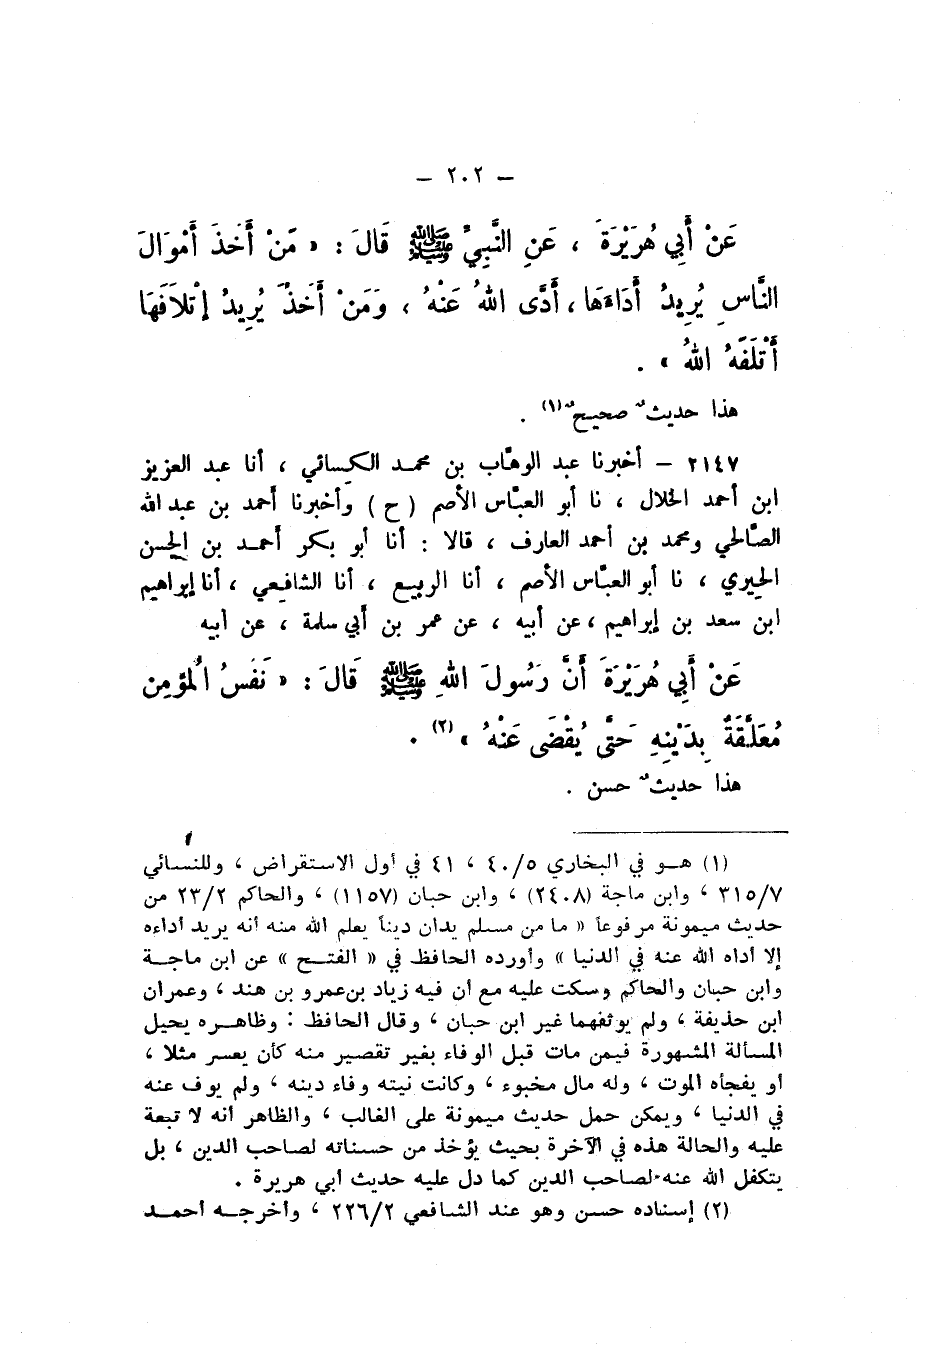 – ٢٠٢ –
عَنْ أَبِي هُرَيْرَةَ ، عَنِ النَّبِيِّ ﷺ قَالَ : « مَنْ أَخَذَ أَمْوَالَ
النَّاسِ يُرِيدُ أَدَاءَهَا ، أَدَّى اللهُ عَنْهُ ، وَمَنْ أَخَذَ يُرِيدُ إِتْلَافَهَا
أَتْلَفَهُ اللهُ » .
هذا حديثٌ صحيحٌ (١) .
٢١٤٧ – أخبرنا عبد الوهَّاب بن محمد الكِسائي ، أنا عبد العزيز
ابن أحمد الخلال ، نا أبو العبَّاس الأصم ( ح ) وأخبرنا أحمد بن عبد الله
الصَّالحي ومحمد بن أحمد العارف ، قالا : أنا أبو بكر أحمد بن الحسن
الحيري ، نا أبو العبَّاس الأصم ، أنا الربيع ، أنا الشافعي ، أنا إبراهيم
ابن سعد بن إبراهيم ، عن أبيه ، عن عمر بن أبي سلمة ، عن أبيه
عَنْ أَبِي هُرَيْرَةَ أَنَّ رَسُولَ اللهِ ﷺ قَالَ : « نَفَسُ الْمُؤمِنِ
مُعَلَّقَةٌ بِدَيْنِهِ حَتَّى يُقْضَى عَنْهُ » (٢) .
هذا حديثٌ حسن .
(١) هـو في البخاري ٤٠/٥ ، ٤١ في أول الاستقراض ، وللنسائي
٣١٥/٧ ، وابن ماجة (٢٤٠٨) ، وابن حبان (١١٥٧) ، والحاكم ٢٣/٢ من
حديث ميمونة مرفوعاً « ما من مسلم يدان ديناً يعلم الله منه أنه يريد أداءه
إلا أداه الله عنه في الدنيا » وأورده الحافظ في « الفتح » عن ابن ماجة
وابن حبان والحاكم وسكت عليه مع أن فيه زياد بن عمرو بن هند ، وعمران
ابن حذيفة ، ولم يوثقهما غير ابن حبان ، وقال الحافظ : وظاهره يحيل
المسألة المشهورة فيمن مات قبل الوفاء بغير تقصير منه كأن يعسر مثلا ،
أو يفجأه الموت ، وله مال مخبوء ، وكانت نيته وفاء دينه ، ولم يوف عنه
في الدنيا ، ويمكن حمل حديث ميمونة على الغالب ، والظاهر أنه لا تبعة
عليه والحالة هذه في الآخرة بحيث يؤخذ من حسناته لصاحب الدين ، بل
يتكفل الله عنه لصاحب الدين كما دل عليه حديث أبي هريرة .
(٢) إسناده حسن وهو عند الشافعي ٢٢٦/٢ ، وأخرجه أحمد